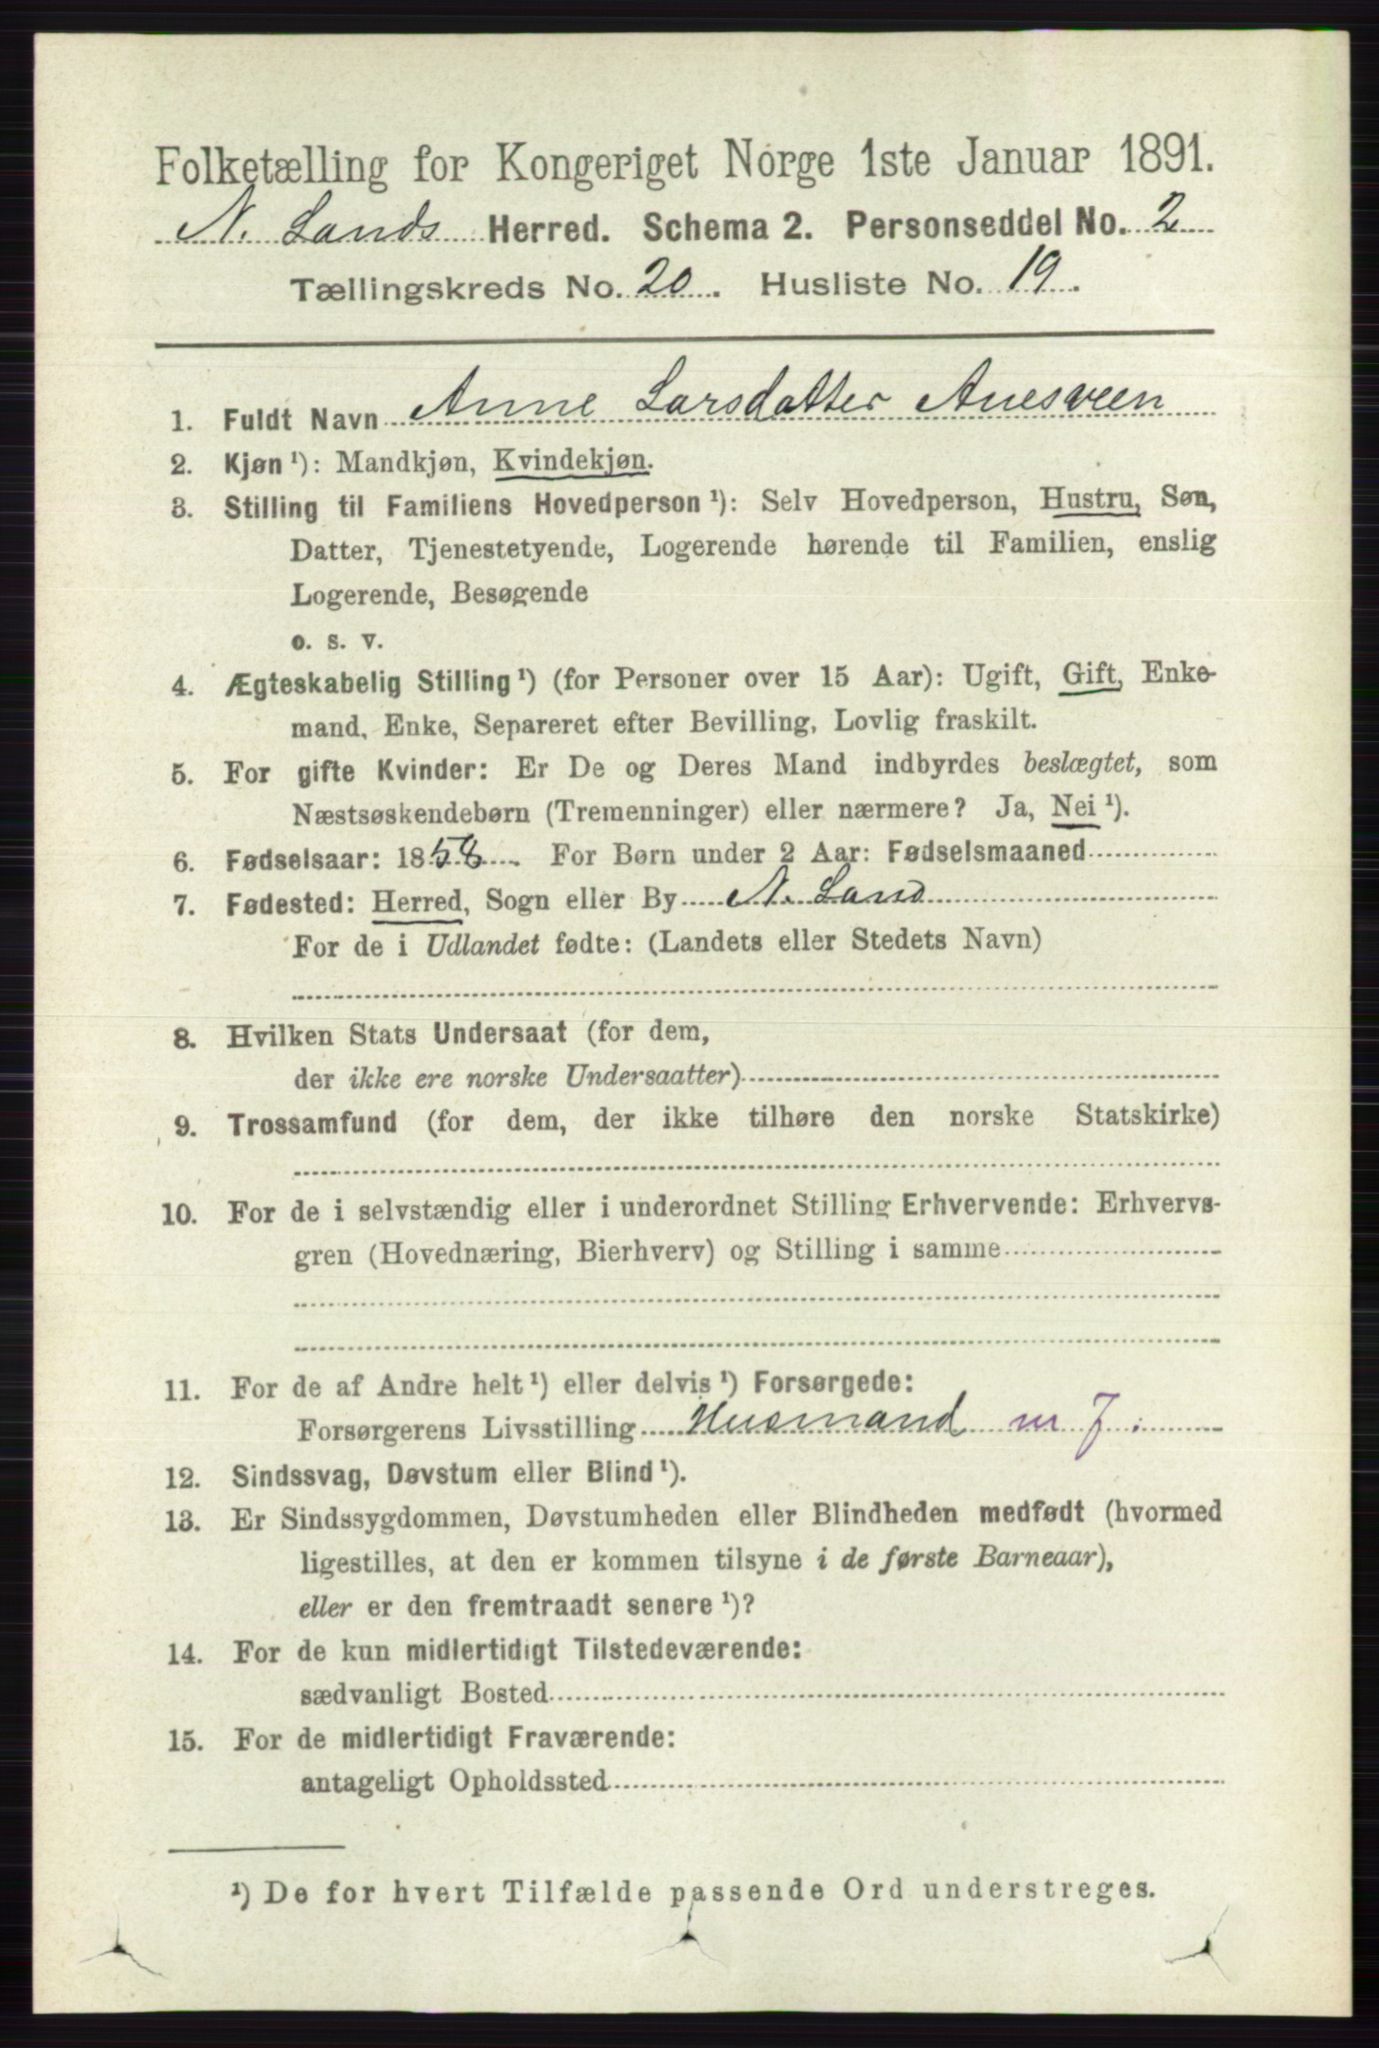 Folketælling for Kongeriget Norge 1ste Januar 1891.
N. Lands Herred. Schema 2. Personseddel No. 2
Tællingskreds No. 20. Husliste No. 19.
1. Fuldt Navn Anne Larsdatter Anesveen
2. Kjøn ¹): Mandkjøn, Kvindekjøn.
3. Stilling til Familiens Hovedperson ¹): Selv Hovedperson, Hustru, Søn,
Datter, Tjenestetyende, Logerende hørende til Familien, enslig
Logerende, Besøgende
o. s. v.
4. Ægteskabelig Stilling ¹) (for Personer over 15 Aar): Ugift, Gift, Enke-
mand, Enke, Separeret efter Bevilling, Lovlig fraskilt.
5. For gifte Kvinder: Er De og Deres Mand indbyrdes beslægtet, som
Næstsøskendebørn (Tremenninger) eller nærmere? Ja, Nei ¹).
6. Fødselsaar: 1858. For Børn under 2 Aar: Fødselsmaaned
7. Fødested: Herred, Sogn eller By N. Land
For de i Udlandet fødte: (Landets eller Stedets Navn)
8. Hvilken Stats Undersaat (for dem,
der ikke ere norske Undersaatter)
9. Trossamfund (for dem, der ikke tilhøre den norske Statskirke)
10. For de i selvstændig eller i underordnet Stilling Erhvervende: Erhvervs-
gren (Hovednæring, Bierhverv) og Stilling i samme
11. For de af Andre helt ¹) eller delvis ¹) Forsørgede:
Forsørgerens Livsstilling Husmand m J.
12. Sindssvag, Døvstum eller Blind ¹).
13. Er Sindssygdommen, Døvstumheden eller Blindheden medfødt (hvormed
ligestilles, at den er kommen tilsyne i de første Barneaar),
eller er den fremtraadt senere ¹)?
14. For de kun midlertidigt Tilstedeværende:
sædvanligt Bosted
15. For de midlertidigt Fraværende:
antageligt Opholdssted
¹) De for hvert Tilfælde passende Ord understreges.